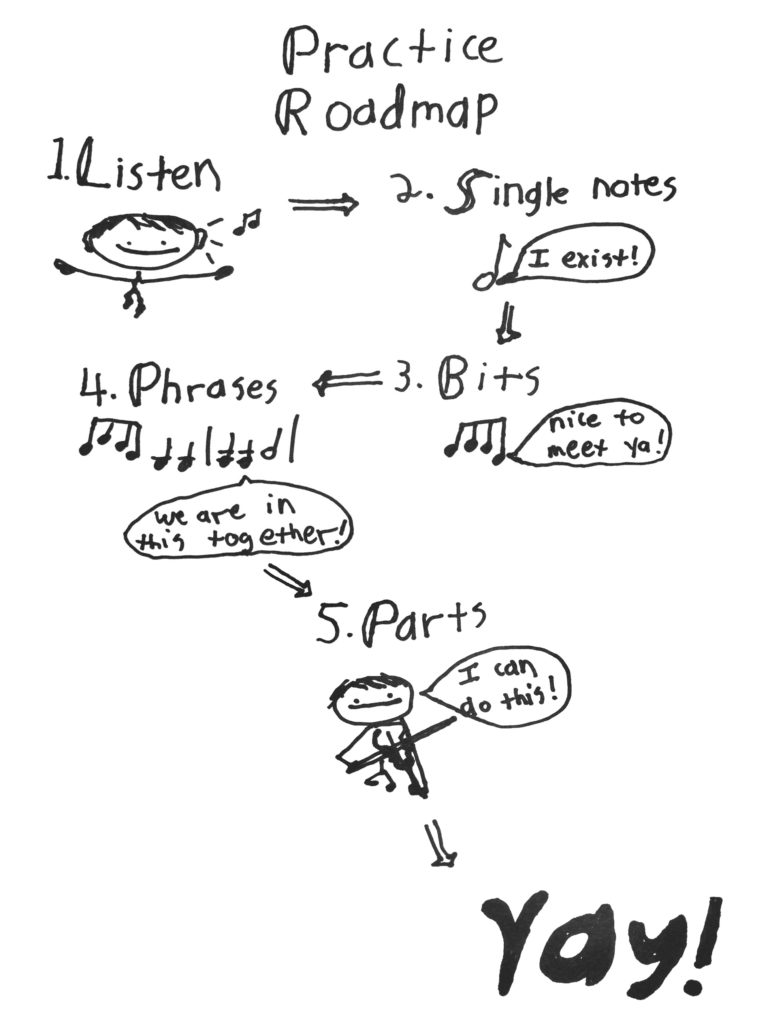 Practice
Roadmap
1. Listen
2. Single notes
I exist!
3. Bits
nice to
meet ya!
4. Phrases
we are in
this together!
5. Parts
I can
do this!
Yay!